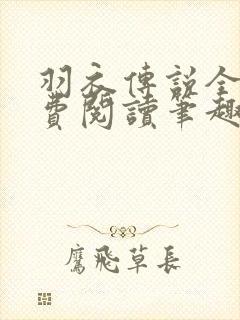 羽衣傳說全
費閱讀筆趣
鷹飛草長